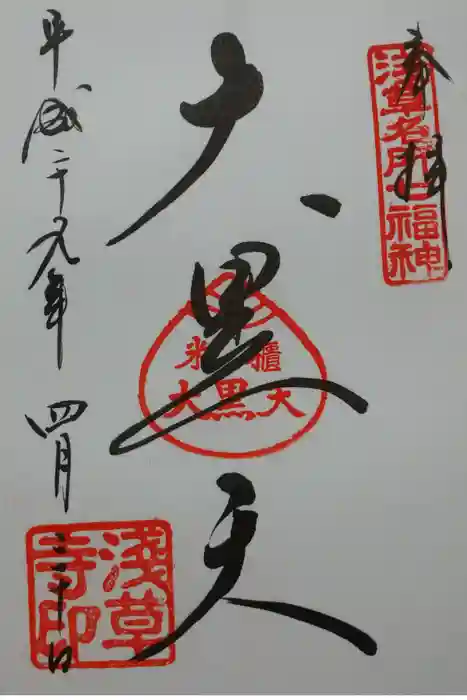 奉拝
浅草名所七福神
大黒天
米櫃
大黒天
平成二十九年四月三十日
浅草寺印